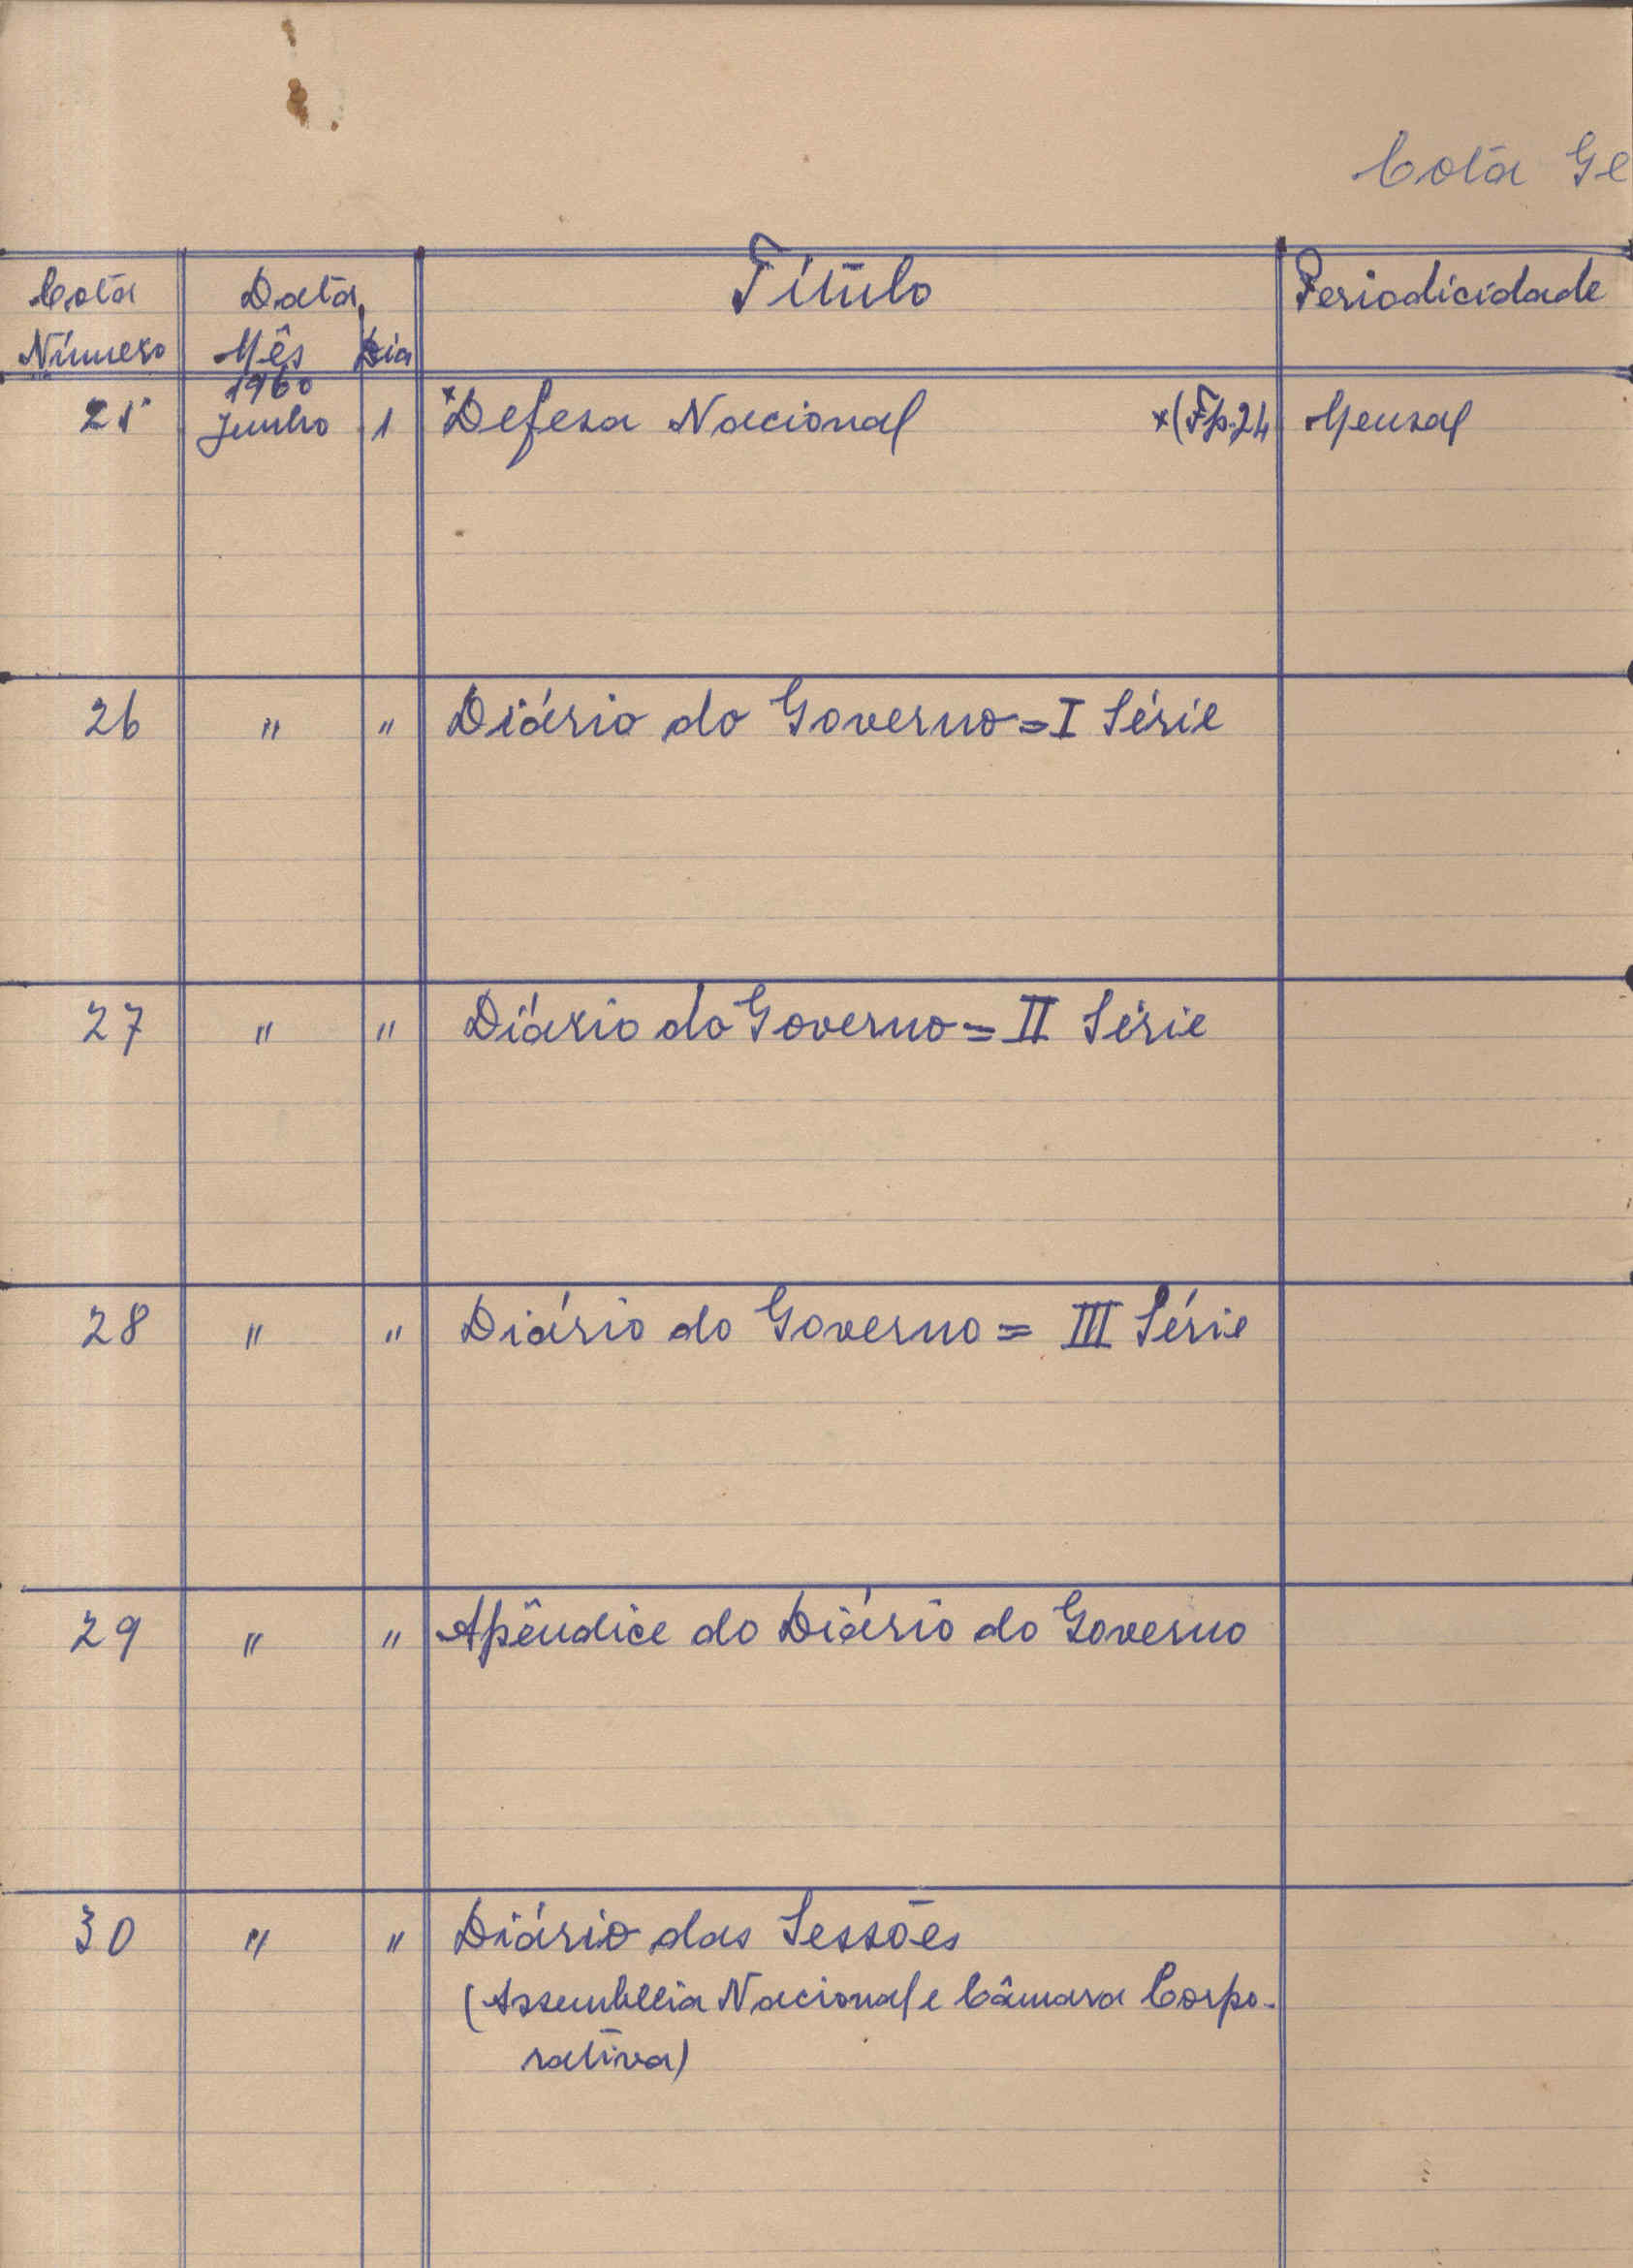 Cota Ge
Cota Data Título Periodicidade
Número Mês Dia
1960
25 Junho 1 *Defesa Nacional *(Fp.24 Mensal
26 " " Diário do Governo = I Série
27 " " Diário do Governo = II Série
28 " " Diário do Governo = III Série
29 " " Apêndice do Diário do Governo
30 " " Diário das Sessões
(Assembleia Nacional e Câmara Corpo-
rativa)